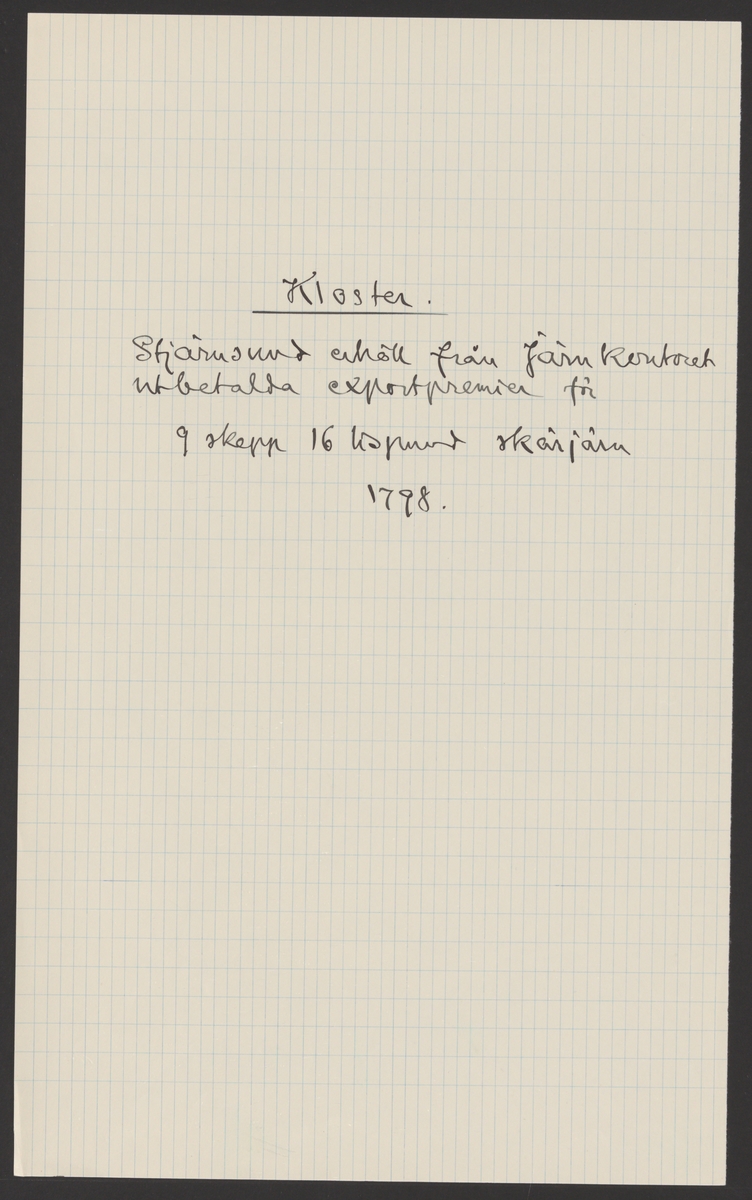 Kloster.
Stjärnsund erhöll från Järnkontoret
utbetalda exportpremier för
9 skepp 16 lispund skärjärn
1798.